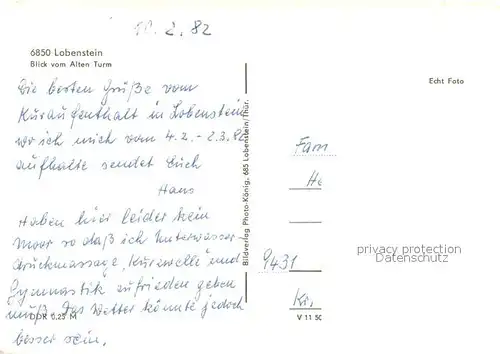 10.2.82
6850 Lobenstein
Blick vom Alten Turm
Echt Foto
Die besten Grüße vom
Kuraufenthalt in Lobenstein
wo ich mich vom 4.2. - 2.3.82
aufhalte sendet Euch
Hans
Haben hier leider kein
Moor so daß ich Unterwasser-
druckmassage, Kurzwelle und
Gymnastik zufrieden geben
muß. Das Wetter könnte jedoch
besser sein.
DDR 0,25 M
Bildverlag Photo-König, 685 Lobenstein/Thür.
Fam
He
9431
privacy protection
Datenschutz
V 11 50